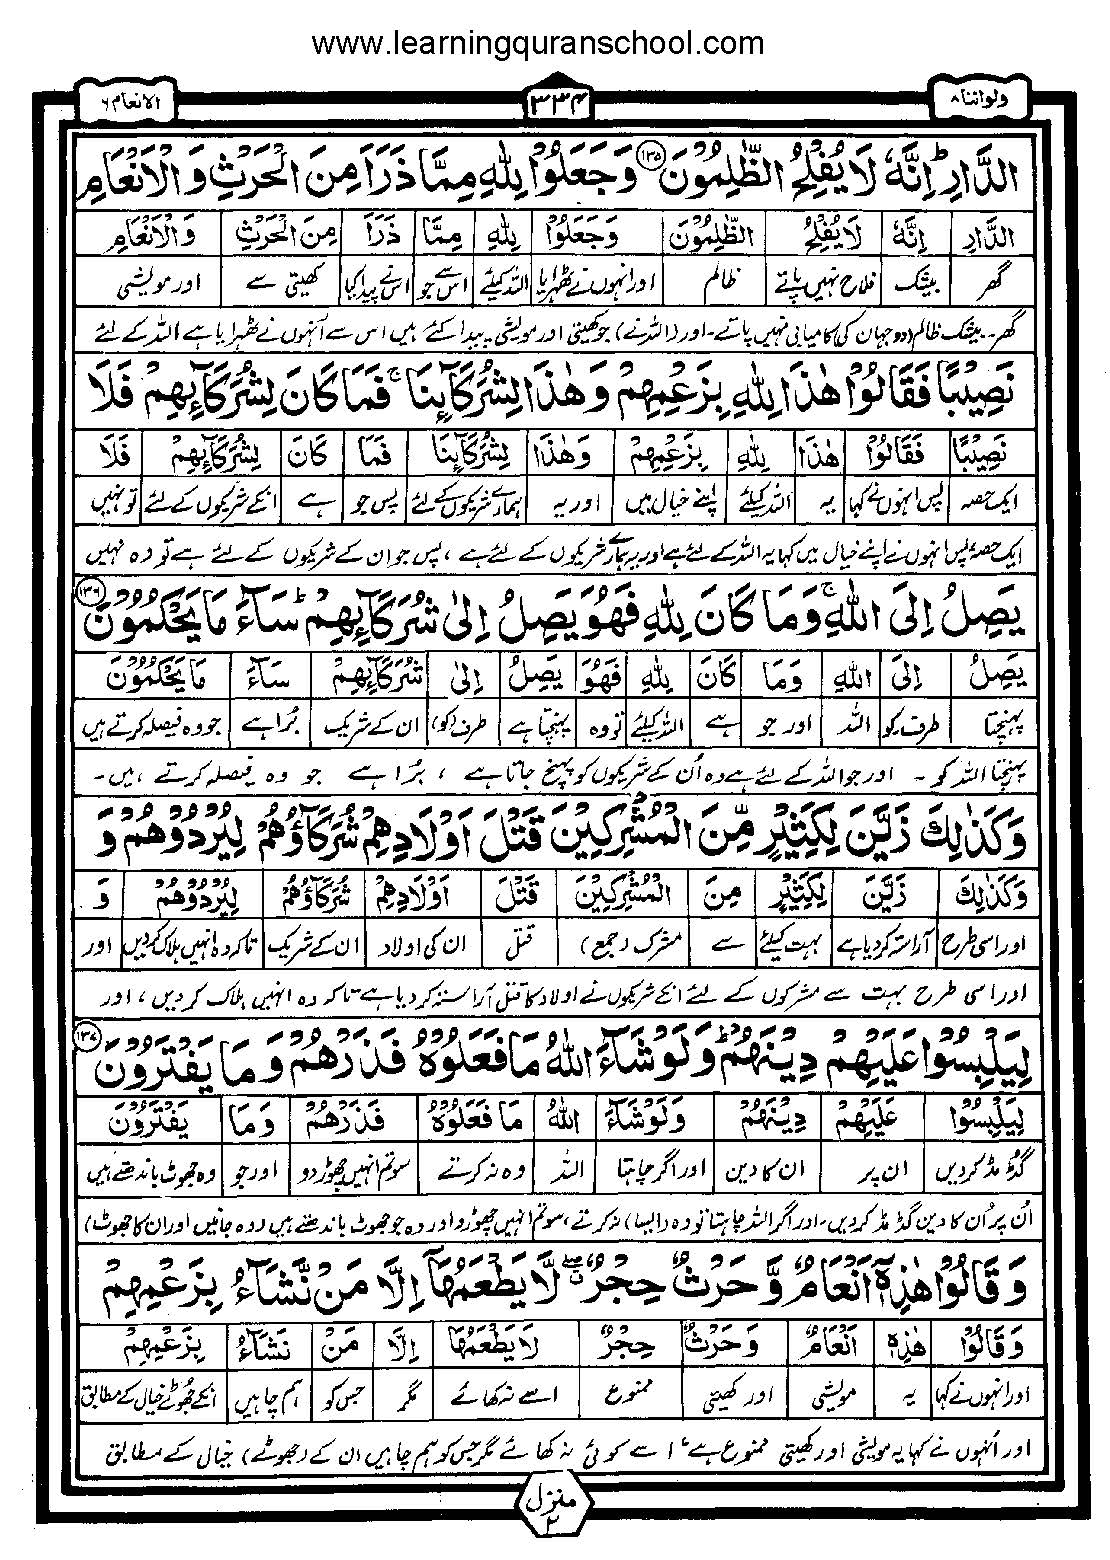 www.learningquranschool.com
ولواننا ۸
۳۳۴
الانعام ۶
الدَّارِ ؕ اِنَّهٗ لَا يُفْلِحُ الظّٰلِمُوْنَ ﴿۱۳۵﴾ وَجَعَلُوْا لِلّٰهِ مِمَّا ذَرَاَ مِنَ الْحَرْثِ وَالْاَنْعَامِ
الدَّارِ اِنَّهٗ لَا يُفْلِحُ الظّٰلِمُوْنَ وَجَعَلُوْا لِلّٰهِ مِمَّا ذَرَاَ مِنَ الْحَرْثِ وَالْاَنْعَامِ
گھر بیشک فلاح نہیں پاتے ظالم اور انہوں نے ٹھہرایا اللہ کیلئے اس سے جو اس نے پیدا کیا کھیتی سے اور مویشی
گھر۔ بیشک ظالم (دو جہان کی کامیابی نہیں پاتے۔ اور (اللہ نے) جو کھیتی اور مویشی پیدا کئے ہیں اس سے اُنہوں نے ٹھہرایا ہے اللہ کے لئے
نَصِيْبًا فَقَالُوْا هٰذَا لِلّٰهِ بِزَعْمِهِمْ وَهٰذَا لِشُرَكَآئِنَا ۚ فَمَا كَانَ لِشُرَكَآئِهِمْ فَلَا
نَصِيْبًا فَقَالُوْا هٰذَا لِلّٰهِ بِزَعْمِهِمْ وَهٰذَا لِشُرَكَآئِنَا فَمَا كَانَ لِشُرَكَآئِهِمْ فَلَا
ایک حصہ پس انہوں نے کہا یہ اللہ کیلئے اپنے خیال میں اور یہ ہمارے شریکوں کے لئے پس جو ہے انکے شریکوں کے لئے تو نہیں
ایک حصہ پس انہوں نے اپنے خیال میں کہا یہ اللہ کے لئے ہے اور یہ ہمارے شریکوں کے لئے ہے، پس جو ان کے شریکوں کے لئے ہے تو وہ نہیں
يَصِلُ اِلَى اللّٰهِ ۚ وَمَا كَانَ لِلّٰهِ فَهُوَ يَصِلُ اِلٰى شُرَكَآئِهِمْ ؕ سَآءَ مَا يَحْكُمُوْنَ ﴿۱۳۶﴾
يَصِلُ اِلَى اللّٰهِ وَمَا كَانَ لِلّٰهِ فَهُوَ يَصِلُ اِلٰى شُرَكَآئِهِمْ سَآءَ مَا يَحْكُمُوْنَ
پہنچتا طرف کو اللہ اور جو ہے اللہ کیلئے تو وہ پہنچتا ہے طرف (کو) ان کے شریک بُرا ہے جو وہ فیصلہ کرتے ہیں
پہنچتا اللہ کو۔ اور جو اللہ کے لئے ہے وہ اُن کے شریکوں کو پہنچ جاتا ہے، بُرا ہے جو وہ فیصلہ کرتے ہیں۔
وَكَذٰلِكَ زَيَّنَ لِكَثِيْرٍ مِّنَ الْمُشْرِكِيْنَ قَتْلَ اَوْلَادِهِمْ شُرَكَآؤُهُمْ لِيُرْدُوْهُمْ وَ
وَكَذٰلِكَ زَيَّنَ لِكَثِيْرٍ مِنَ الْمُشْرِكِيْنَ قَتْلَ اَوْلَادِهِمْ شُرَكَآؤُهُمْ لِيُرْدُوْهُمْ وَ
اور اسی طرح آراستہ کر دیا ہے بہت کیلئے سے مشرک (جمع) قتل ان کی اولاد ان کے شریک تاکہ وہ انہیں ہلاک کر دیں اور
اور اسی طرح بہت سے مشرکوں کے لئے انکے شریکوں نے اولاد کا قتل آراستہ کر دیا ہے تاکہ وہ انہیں ہلاک کر دیں، اور
لِيَلْبِسُوْا عَلَيْهِمْ دِيْنَهُمْ ؕ وَلَوْ شَآءَ اللّٰهُ مَا فَعَلُوْهُ فَذَرْهُمْ وَمَا يَفْتَرُوْنَ ﴿۱۳۷﴾
لِيَلْبِسُوْا عَلَيْهِمْ دِيْنَهُمْ وَلَوْ شَآءَ اللّٰهُ مَا فَعَلُوْهُ فَذَرْهُمْ وَمَا يَفْتَرُوْنَ
گڈ مڈ کر دیں ان پر ان کا دین اور اگر چاہتا اللہ وہ نہ کرتے سو تم انہیں چھوڑ دو اور جو وہ جھوٹ باندھتے ہیں
اُن پر اُن کا دین گڈ مڈ کر دیں۔ اور اگر اللہ چاہتا تو وہ (ایسا) نہ کرتے، سو تم انہیں چھوڑ دو اور وہ جو جھوٹ باندھتے ہیں (وہ جانیں اور ان کا جھوٹ)
وَقَالُوْا هٰذِهٖٓ اَنْعَامٌ وَّحَرْثٌ حِجْرٌ لَّا يَطْعَمُهَآ اِلَّا مَنْ نَّشَآءُ بِزَعْمِهِمْ
وَقَالُوْا هٰذِهٖ اَنْعَامٌ وَحَرْثٌ حِجْرٌ لَا يَطْعَمُهَا اِلَّا مَنْ نَشَآءُ بِزَعْمِهِمْ
اور انہوں نے کہا یہ مویشی اور کھیتی ممنوع اسے نہ کھائے مگر جس کو ہم چاہیں انکے جھوٹے خیال کے مطابق
اور اُنہوں نے کہا یہ مویشی اور کھیتی ممنوع ہے، اسے کوئی نہ کھائے مگر جس کو ہم چاہیں ان کے (جھوٹے) خیال کے مطابق
منزل ۲